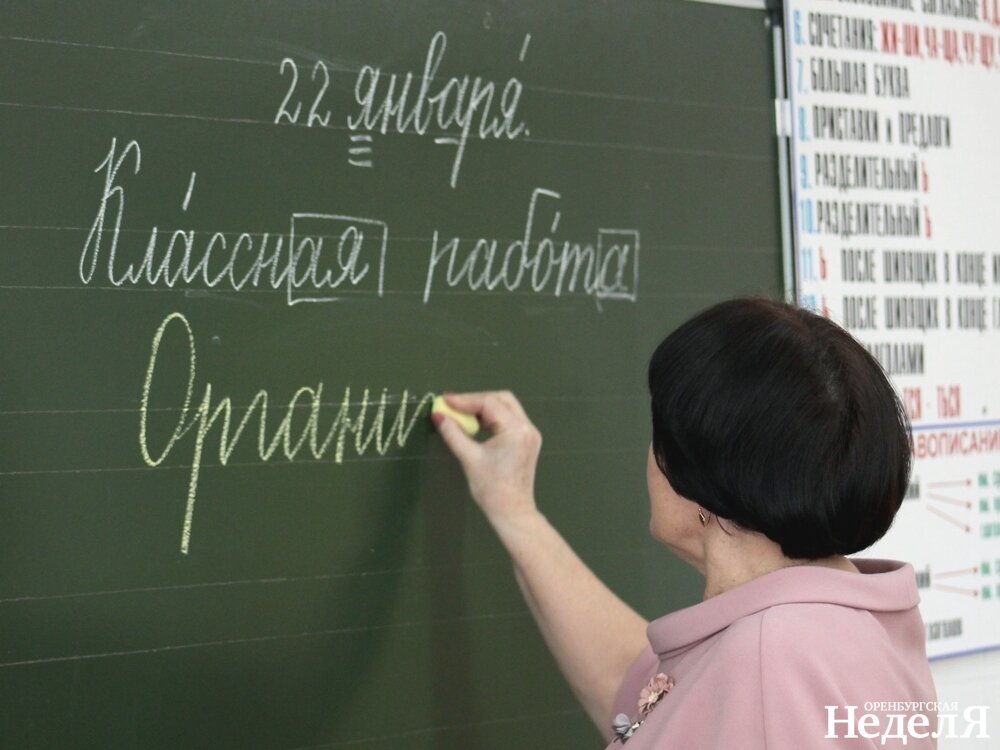 22 января.
Классная работа
Органи
6. СОЧЕТАНИЯ: ЖИ-ШИ, ЧА-ЩА, ЧУ-ЩУ,
7. БОЛЬШАЯ БУКВА
8. ПРИСТАВКИ и ПРЕДЛОГИ
9. РАЗДЕЛИТЕЛЬНЫЙ Ь
10. РАЗДЕЛИТЕЛЬНЫЙ Ъ
11. Ь ПОСЛЕ ШИПЯЩИХ В КОНЦЕ
ПОСЛЕ ШИПЯЩИХ В КОНЦЕ
- ТЬСЯ
ОРЕНБУРГСКАЯ
НеделЯ